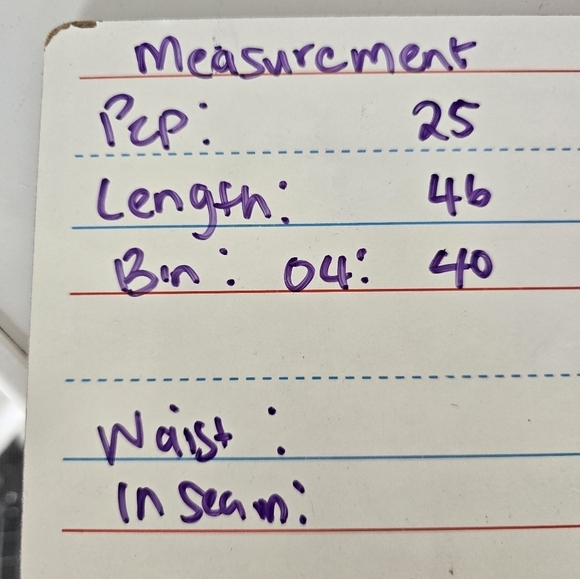 Measurement
Pcp: 25
Length: 46
Bin: 04: 40
Waist:
In seam: